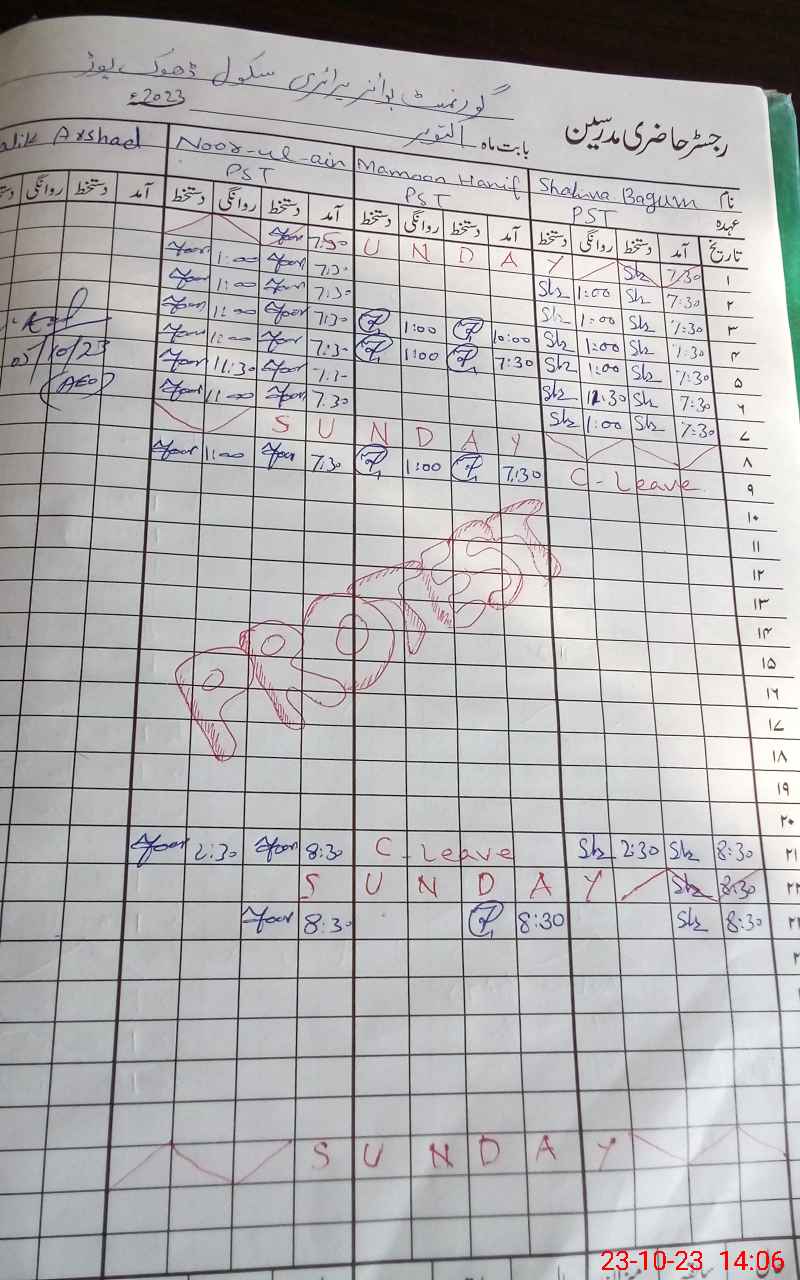 گورنمنٹ بوائز پرائمری سکول ڈھوک
رجسٹر حاضری مدرسین بابت ماہ اکتوبر 2023ء
نام Shahna Bagum Mamoon Hanif Noor-ul-ain Arshad
عہدہ PST PST PST
تاریخ آمد دستخط روانگی دستخط آمد دستخط روانگی دستخط آمد دستخط روانگی دستخط آمد دستخط روانگی
۱ 7:30 Sh U N D A Y 7:30
۲ 7:30 Sh 1:00 Sh 7:30 Noor 1:00 Noor
۳ 7:30 Sh 1:00 Sh 7:30 Noor 1:00 Noor
۴ 7:30 Sh 1:00 Sh 10:00 1:00 7:30 Noor 1:00 Noor
۵ 7:30 Sh 1:00 Sh 7:30 1:00 7:30 Noor 1:00 Noor
۶ 7:30 Sh 11:30 Sh 7:30 Noor 11:30 Noor
۷ 7:30 Sh 1:00 Sh 7:30 Noor 1:00 Noor
۸ S U N D A Y
۹ C-Leave 7:30 1:00 7:30 Noor 1:00 Noor
/10/23
(AEO)
۱۰
۱۱
۱۲
۱۳
۱۴
۱۵
۱۶
۱۷
۱۸
۱۹
۲۰
PROTEST
۲۱ 8:30 Sh 2:30 Sh C-Leave 8:30 Noor 2:30 Noor
۲۲ 8:30 Sh S U N D A Y
8:30 Sh 8:30 8:30 Noor
S U N D A Y
23-10-23 14:06